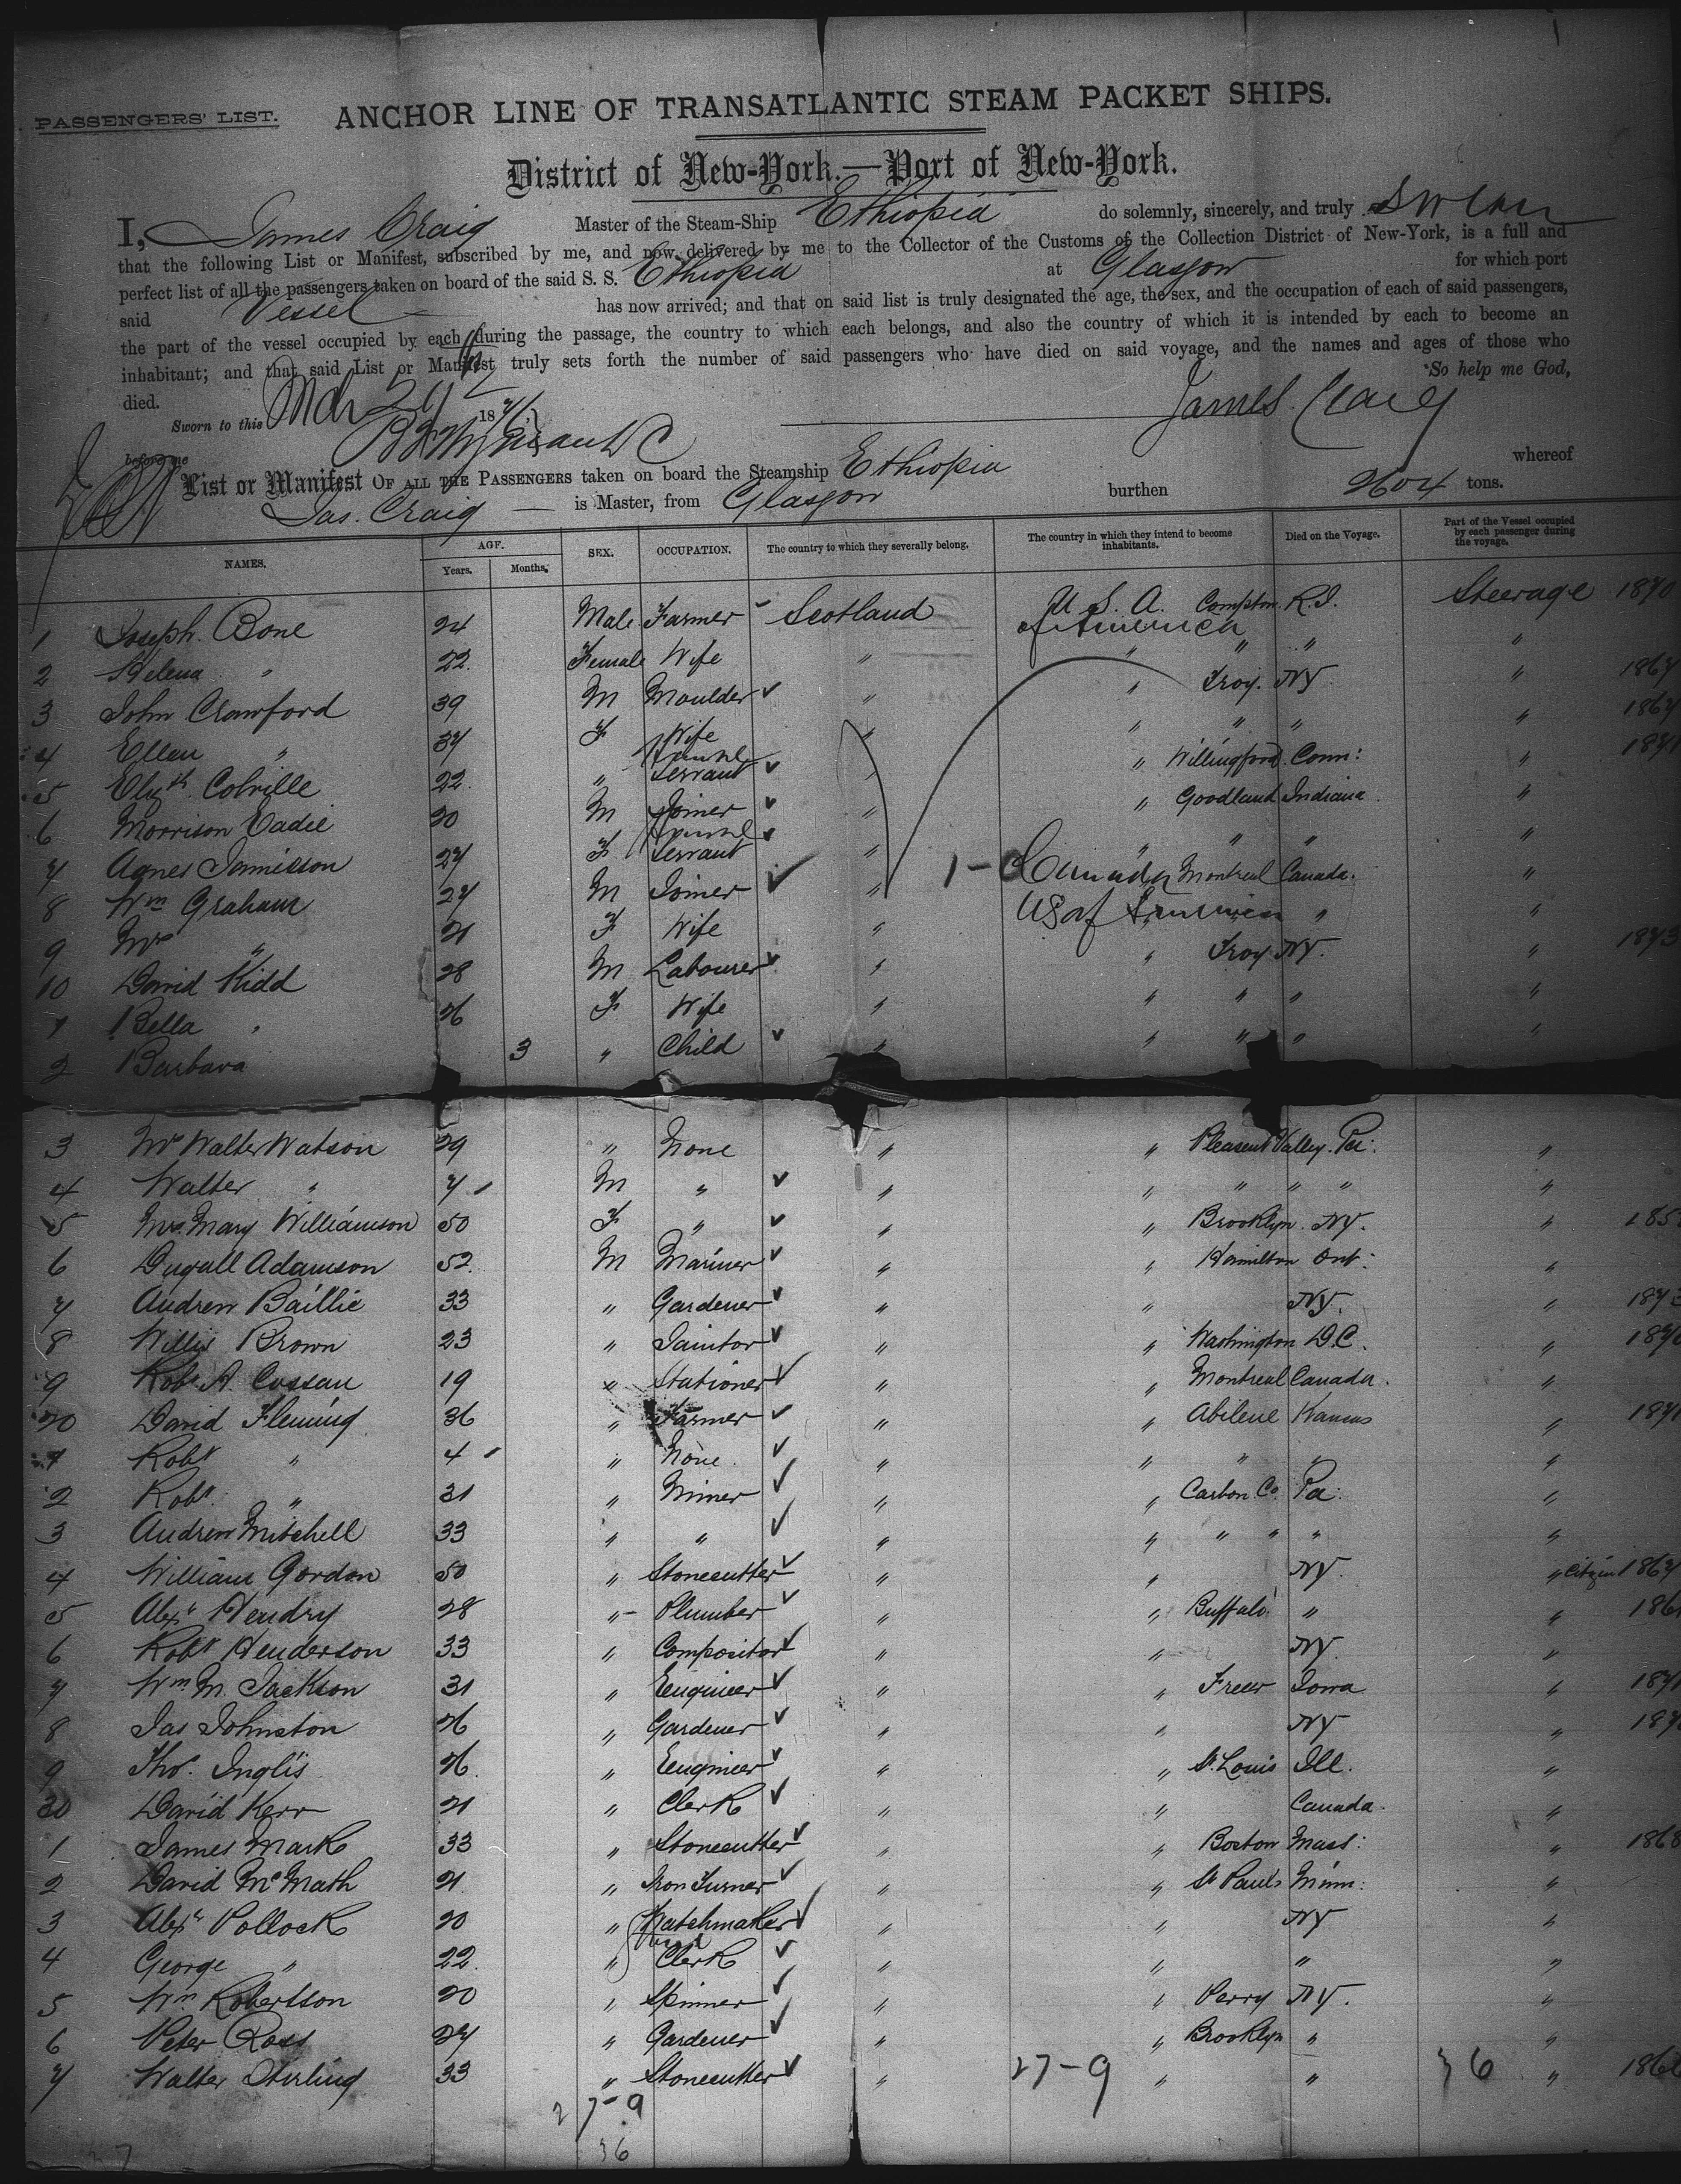 PASSENGERS' LIST. ANCHOR LINE OF TRANSATLANTIC STEAM PACKET SHIPS.
District of New-York.—Port of New-York.
I, James Craig Master of the Steam-Ship Ethiopia do solemnly, sincerely, and truly swear
that the following List or Manifest, subscribed by me, and now delivered by me to the Collector of the Customs of the Collection District of New-York, is a full and
perfect list of all the passengers taken on board of the said S. S. Ethiopia at Glasgow for which port
said Vessel has now arrived; and that on said list is truly designated the age, the sex, and the occupation of each of said passengers,
the part of the vessel occupied by each during the passage, the country to which each belongs, and also the country of which it is intended by each to become an
inhabitant; and that said List or Manifest truly sets forth the number of said passengers who have died on said voyage, and the names and ages of those who
died. So help me God,
Sworn to this Mch 18 James Craig
before me
List or Manifest OF ALL THE PASSENGERS taken on board the Steamship Ethiopia whereof
Jas. Craig is Master, from Glasgow burthen 2604 tons.
NAMES. AGE. Years. Months. SEX. OCCUPATION. The country to which they severally belong. The country in which they intend to become inhabitants. Died on the Voyage. Part of the Vessel occupied by each passenger during the voyage.
1 Joseph Bone 24 Male Farmer Scotland U.S.A. of America Compton R.I. Steerage 1870
2 Helena " 22 Female Wife " " " " "
3 John Crawford 39 M Moulder " " Troy. NY. " 1867
4 Ellen " 37 F Wife " " " " " 1867
5 Elizth Colville 22 " Servant " " Willingford Conn: " 1871
6 Morrison Eadie 20 M Joiner " " Goodland Indiana "
7 Agnes Jamieson 27 F Servant " " " " "
8 Wm Graham 27 M Joiner " 1- Canada Montreal Canada. "
9 Mrs " 21 F Wife " US of America " "
10 David Kidd 28 M Labourer " " Troy NY. " 1873
1 Bella " 26 F Wife " " " " "
2 Barbara 3 " Child " " " " "
3 Mrs Walter Watson 29 " None " " Pleasent Valley. Pa: "
4 Walter " 7 M " " " " " " "
5 Mrs. Mary Williamson 50 F " " " Brooklyn. NY. " 185
6 Dugall Adamson 52 M Mariner " " Hamilton Ont: "
7 Andrew Baillie 33 " Gardener " " NY. " 1873
8 Willis Brown 23 " Janitor " " Washington D.C. " 187
9 Robt A. Cossau 19 " Stationer " " Montreal Canada. "
20 David Fleming 36 " Farmer " " Abilene Kansas " 1871
1 Robt " 4 " None " " " " "
2 Robt. " 31 " Miner " " Carbon Co. Pa: "
3 Andrew Mitchell 33 " " " " " " " "
4 William Gordon 50 " Stonecutter " " NY. " Citizen 1867
5 Alexr Hendry 28 " Plumber " " Buffalo " " 186
6 Robt Henderson 33 " Compositor " " NY. "
7 Wm M. Jackson 31 " Engineer " " Iowa " 1871
8 Jas Johnston 26 " Gardener " " NY " 187
9 Thos. Inglis 26 " Engineer " " St. Louis Ill. "
30 David Kerr 21 " Clerk " " Canada. "
1 James Mark 33 " Stonecutter " " Boston Mass: " 1868
2 David McMath 21 " Iron Turner " " St Pauls Minn: "
3 Alexr Pollock 20 " Watchmaker " " NY "
4 George " 22 " Clerk " " " "
5 Wm Robertson 20 " Spinner " " Perry NY. "
6 Peter Ross 27 " Gardener " " Brooklyn " "
7 Walter Stirling 33 " Stonecutter " 27-9 " " 36 " 186
27-9
36